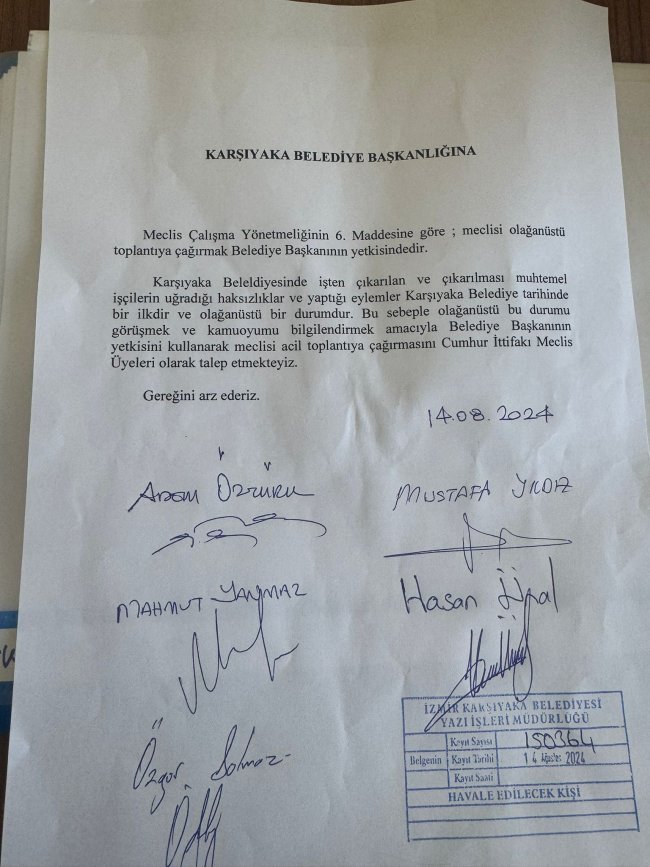 KARŞIYAKA BELEDİYE BAŞKANLIĞINA
Meclis Çalışma Yönetmeliğinin 6. Maddesine göre ; meclisi olağanüstü
toplantıya çağırmak Belediye Başkanının yetkisindedir.
Karşıyaka Beleldiyesinde işten çıkarılan ve çıkarılması muhtemel
işçilerin uğradığı haksızlıklar ve yaptığı eylemler Karşıyaka Belediye tarihinde
bir ilkdir ve olağanüstü bir durumdur. Bu sebeple olağanüstü bu durumu
görüşmek ve kamuoyumu bilgilendirmek amacıyla Belediye Başkanının
yetkisini kullanarak meclisi acil toplantıya çağırmasını Cumhur İttifakı Meclis
Üyeleri olarak talep etmekteyiz.
Gereğini arz ederiz.
14.08.2024
Adem
MUSTAFA YILDIZ
MAHMUT YANMAZ
Hasan Ünal
Özgür Solmaz
İZMİR KARŞIYAKA BELEDİYESİ
YAZI İŞLERİ MÜDÜRLÜĞÜ
Belgenin
Kayıt Sayısı 150364
Kayıt Tarihi 14 Ağustos 2024
Kayıt Saati
HAVALE EDİLECEK KİŞİ